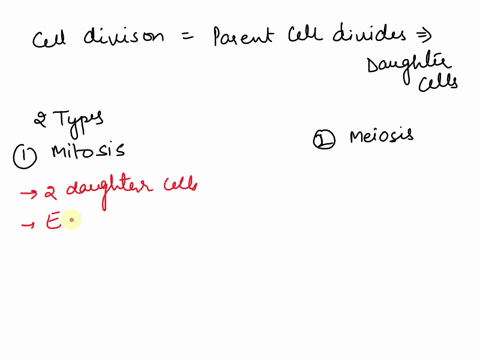 Cell divison = Parent Cell divides ⇒
Daughter
Cells
2 Types
① Mitosis
② Meiosis
→ 2 daughter cells
→ E